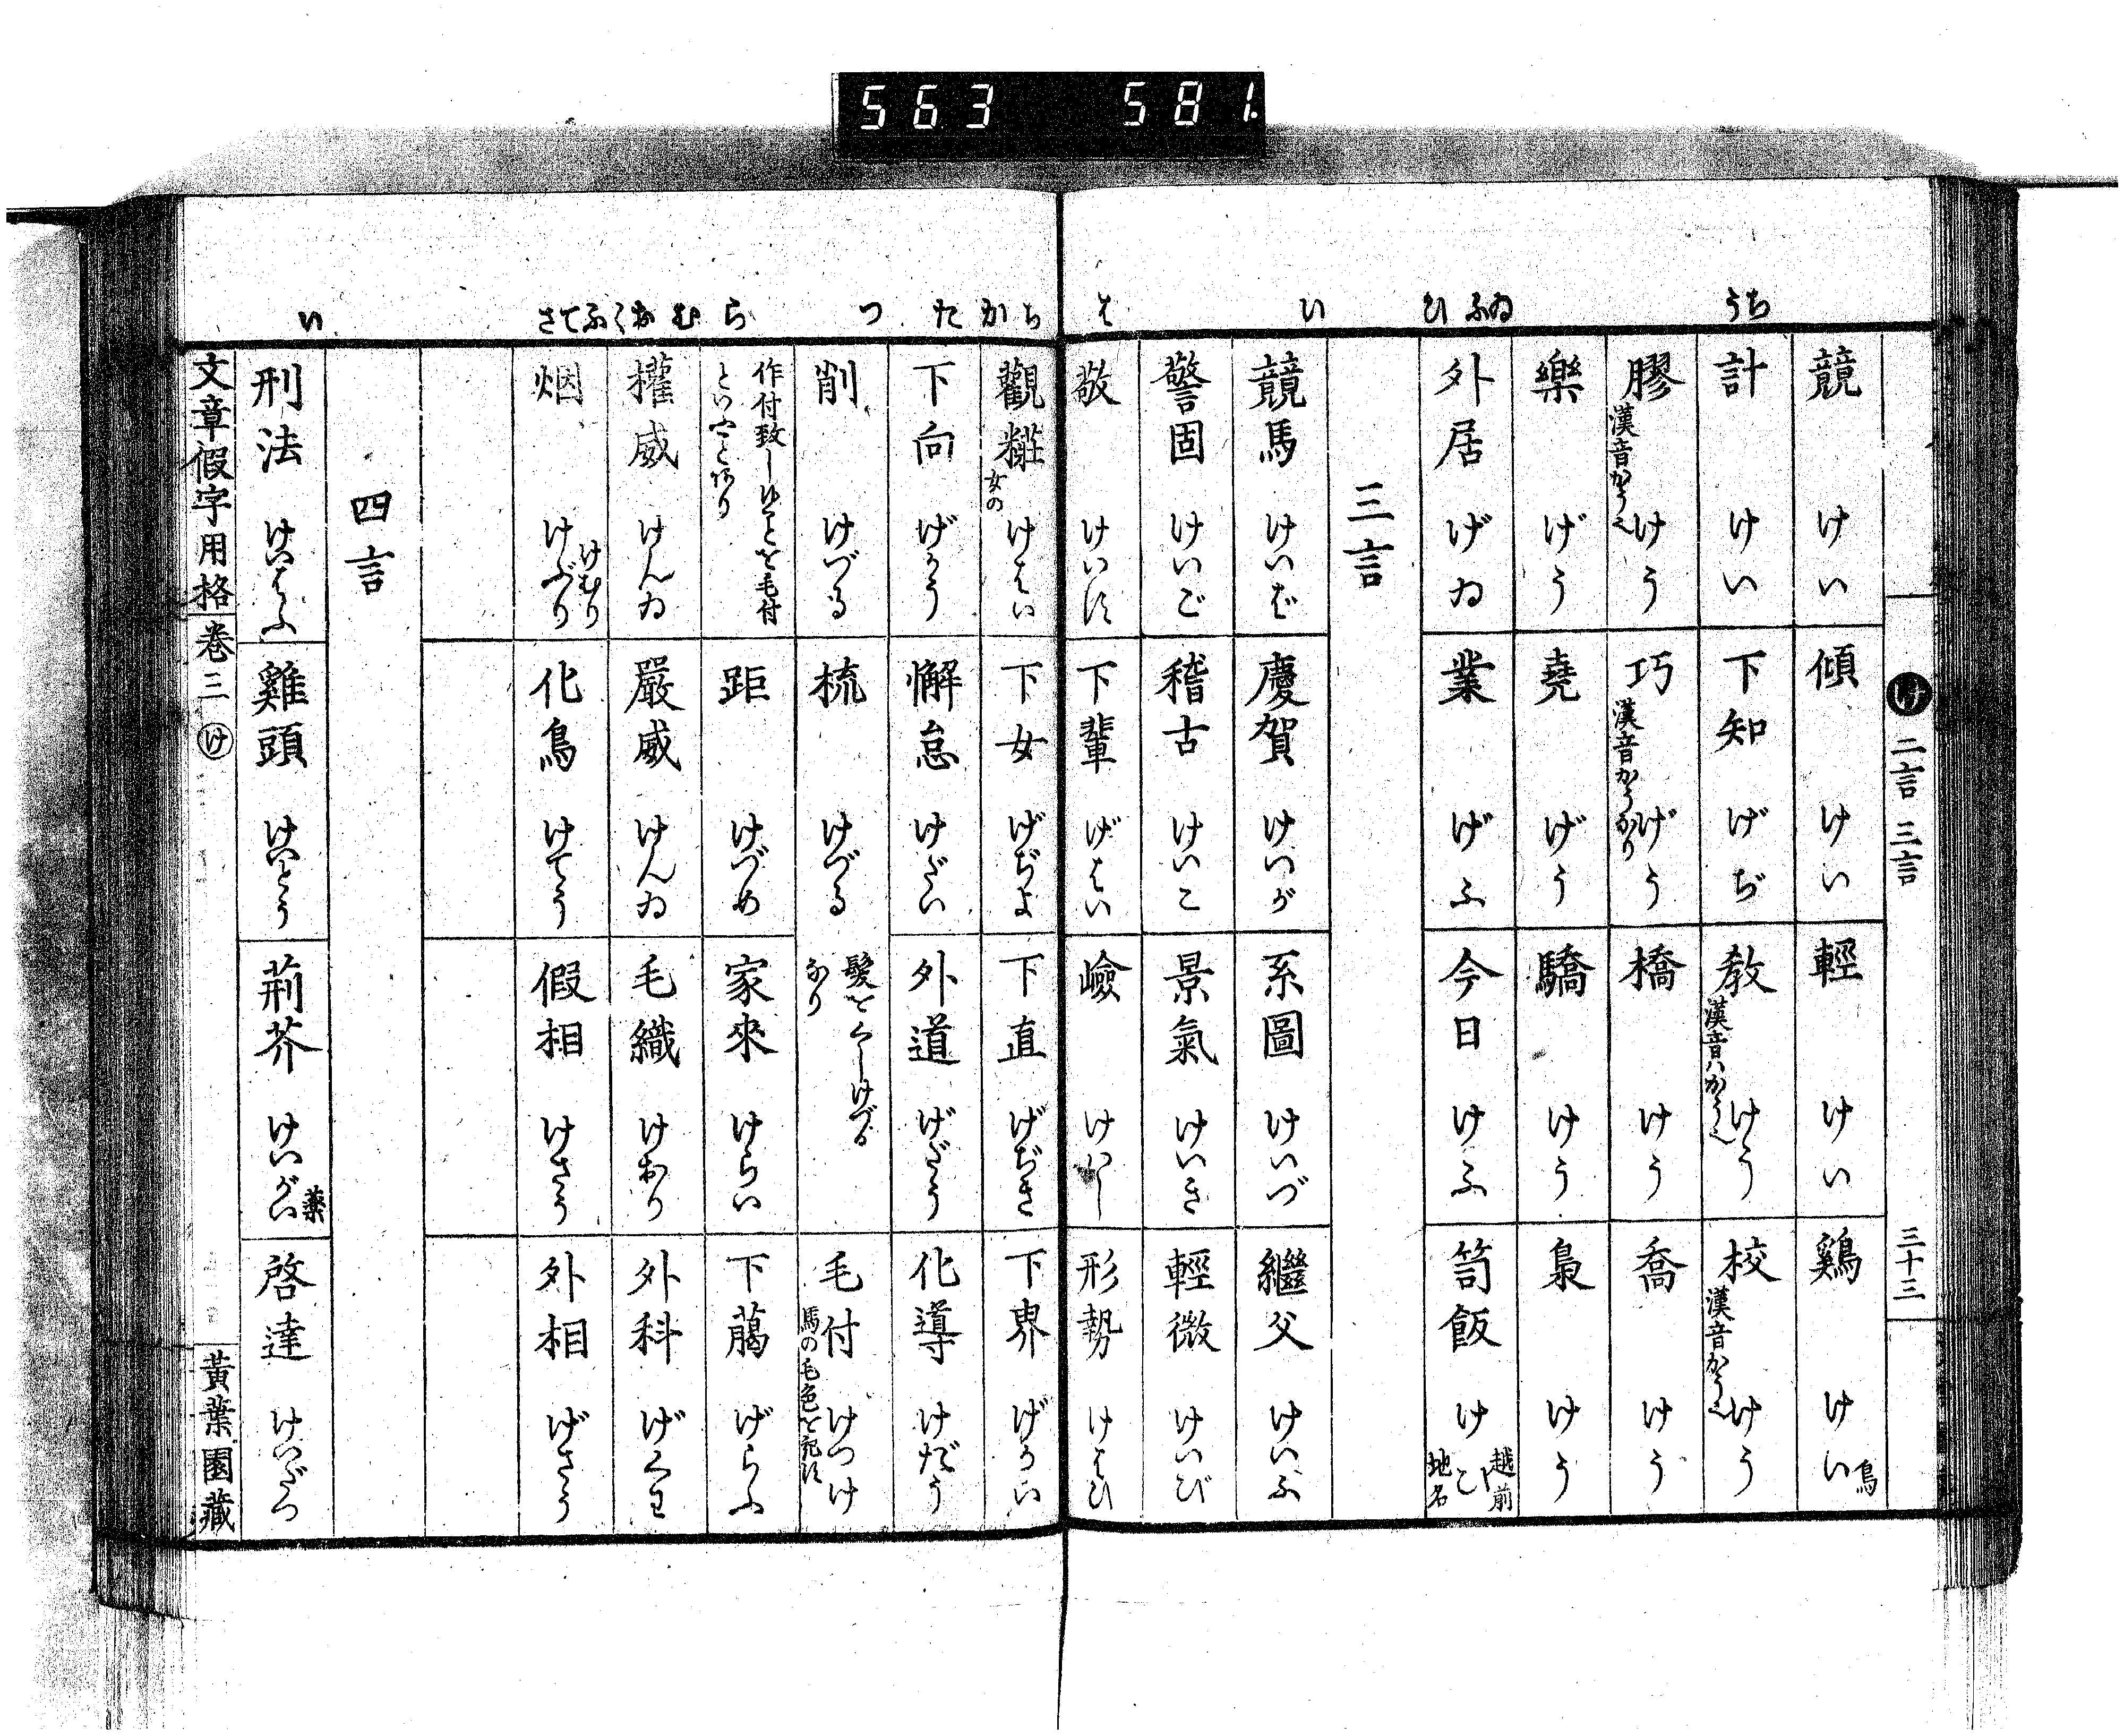 563 581
うち
ふゐ
ひ
い
は
け 二言 三言 三十三
競 けい 傾 けい 輕 けい 鷄 けい 鳥
計 けい 下知 げぢ 教 漢音ハかう也 けう 校 漢音かう也 けう
膠 漢音かう也 けう 巧 漢音かうなり げう 橋 けう 喬 けう
樂 げう 堯 げう 驕 けう 梟 けう
外居 げゐ 業 げふ 今日 けふ 笥飯 けひ 越前 地名
三言
競馬 けいば 慶賀 けいが 系圖 けいづ 繼父 けいふ
警固 けいご 稽古 けいこ 景氣 けいき 輕微 けいび
敬 けいす 下輩 げはい 嶮 けはし 形勢 けはひ
ち
か
た
つ
ら
むおくふてさ
い
觀粧 女の けはい 下女 げぢよ 下直 げぢき 下界 げかい
下向 げかう 懈怠 けだい 外道 げだう 化導 けだう
削 けづる 梳 けづる 髮をくしけづるなり 毛付 馬の毛色を記す けつけ
作付致しゆくことを毛付といふことあり 距 けづめ 家來 けらい 下﨟 げらふ
權威 けんゐ 嚴威 けんゐ 毛織 けおり 外科 げくわ
烟 けむり けぶり 化鳥 けてう 假相 けさう 外相 げさう
四言
刑法 けいはふ 雞頭 けいとう 荊芥 けいがい 藥 啓達 けいだつ
文章假字用格 卷三 け 黃葉園藏